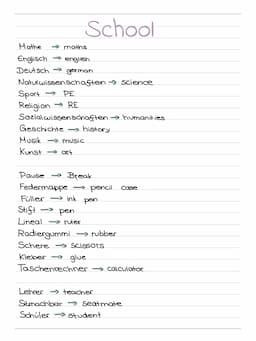 School
Mathe → maths
Englisch → english
Deutsch → german
Naturwissenschaften → science
Sport → PE
Religion → RE
Sozialwissenschaften → humanities
Geschichte → history
Musik → music
Kunst → art
Pause → Break
Federmappe → pencil case
Füller → ink pen
Stift → pen
Lineal → ruler
Radiergummi → rubber
Schere → scissors
Kleber → glue
Taschenrechner → calculator
Lehrer → teacher
Sitznachbar → seatmate
Schüler → student